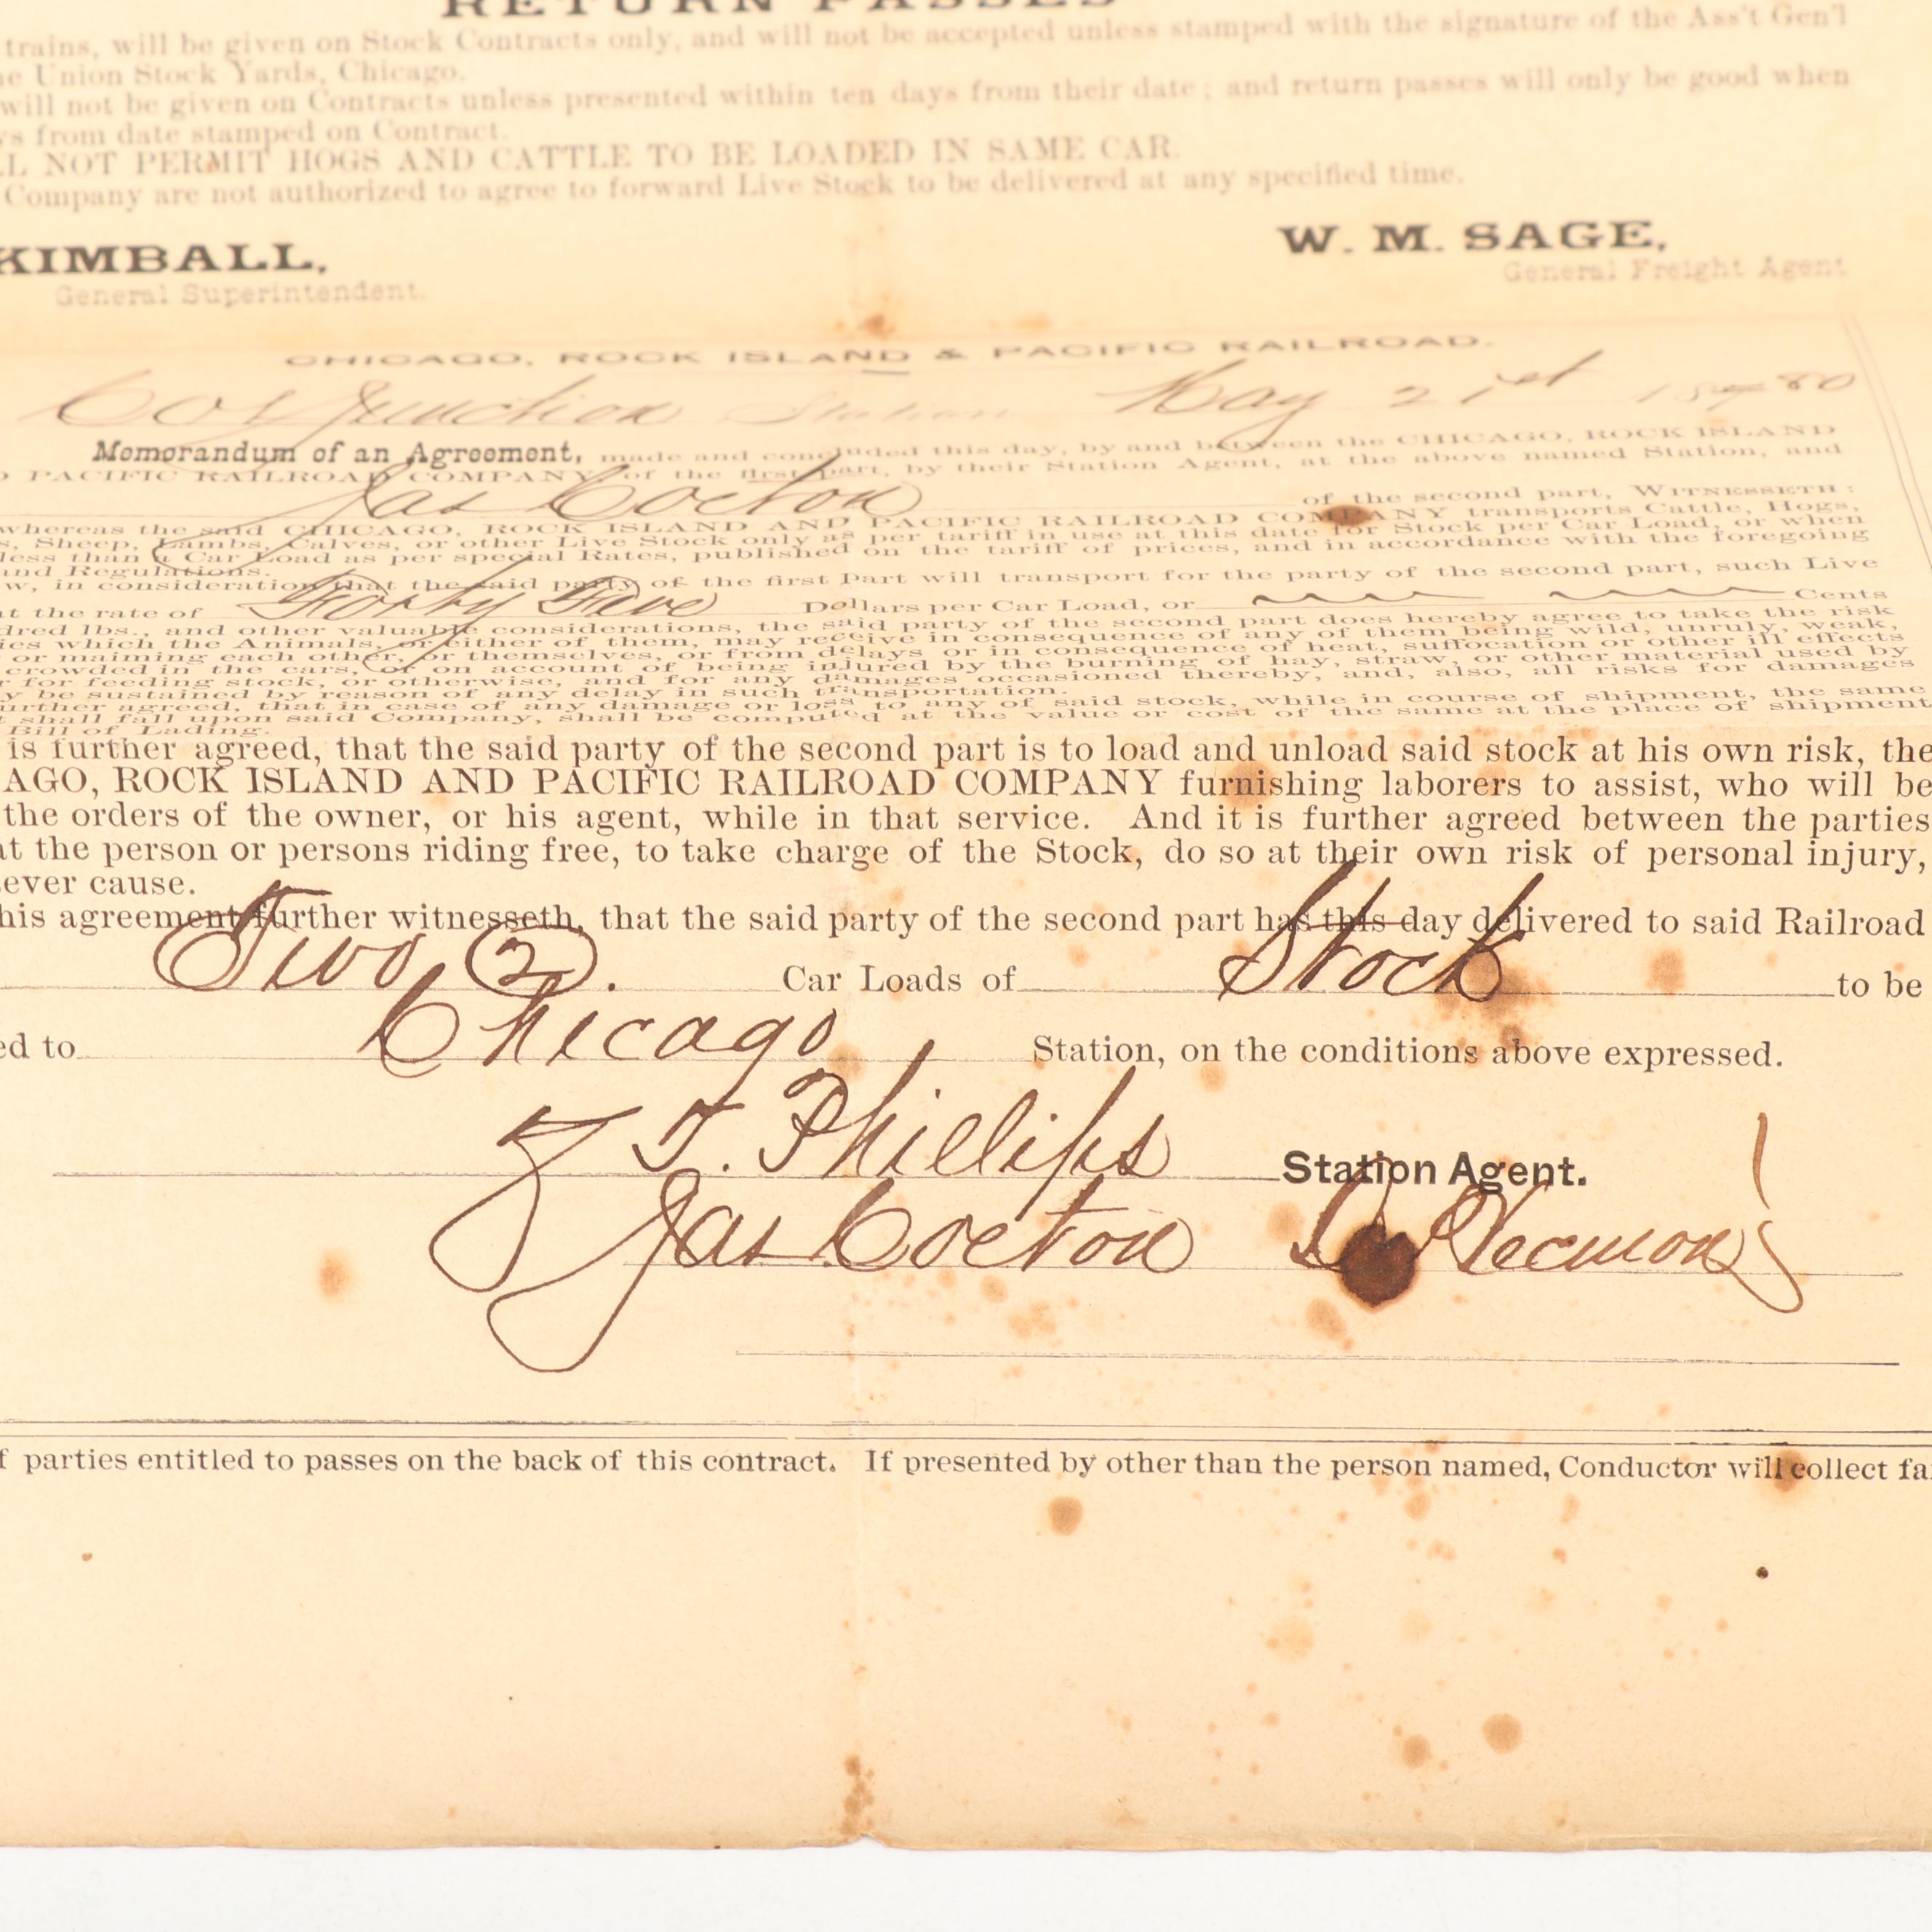 RETURN PASSES
trains, will be given on Stock Contracts only, and will not be accepted unless stamped with the signature of the Ass't Gen'l
he Union Stock Yards, Chicago.
will not be given on Contracts unless presented within ten days from their date; and return passes will only be good when
ys from date stamped on Contract.
LL NOT PERMIT HOGS AND CATTLE TO BE LOADED IN SAME CAR.
Company are not authorized to agree to forward Live Stock to be delivered at any specified time.
KIMBALL,
General Superintendent.
W. M. SAGE,
General Freight Agent
CHICAGO, ROCK ISLAND & PACIFIC RAILROAD.
Junction Station May 21st 1880
Memorandum of an Agreement, made and concluded this day, by and between the CHICAGO, ROCK ISLAND
D PACIFIC RAILROAD COMPANY, of the first part, by their Station Agent, at the above named Station, and
Jas Cocton of the second part, WITNESSETH:
whereas the said CHICAGO, ROCK ISLAND AND PACIFIC RAILROAD COMPANY transports Cattle, Hogs,
s, Sheep, Lambs, Calves, or other Live Stock only as per tariff in use at this date for Stock per Car Load, or when
less than a Car Load as per special Rates, published on the tariff of prices, and in accordance with the foregoing
and Regulations.
w, in consideration that the said party of the first part will transport for the party of the second part, such Live
at the rate of Forty Five Dollars per Car Load, or Cents
dred lbs., and other valuable considerations, the said party of the second part does hereby agree to take the risk
ies which the Animals, or either of them, may receive in consequence of any of them being wild, unruly, weak,
or maiming each other, or themselves, or from delays or in consequence of heat, suffocation or other ill effects
crowded in the cars, or on account of being injured by the burning of hay, straw, or other material used by
r for feeding stock, or otherwise, and for any damages occasioned thereby, and, also, all risks for damages
y be sustained by reason of any delay in such transportation.
urther agreed, that in case of any damage or loss to any of said stock, while in course of shipment, the same
t shall fall upon said Company, shall be computed at the value or cost of the same at the place of shipment
Bill of Lading.
is further agreed, that the said party of the second part is to load and unload said stock at his own risk, the
AGO, ROCK ISLAND AND PACIFIC RAILROAD COMPANY furnishing laborers to assist, who will be
the orders of the owner, or his agent, while in that service. And it is further agreed between the parties
at the person or persons riding free, to take charge of the Stock, do so at their own risk of personal injury,
ever cause.
his agreement further witnesseth, that the said party of the second part has this day delivered to said Railroad
Two (2). Car Loads of Stock to be
ed to Chicago Station, on the conditions above expressed.
T. Phillips Station Agent.
Jas Cocton
f parties entitled to passes on the back of this contract. If presented by other than the person named, Conductor will collect fa